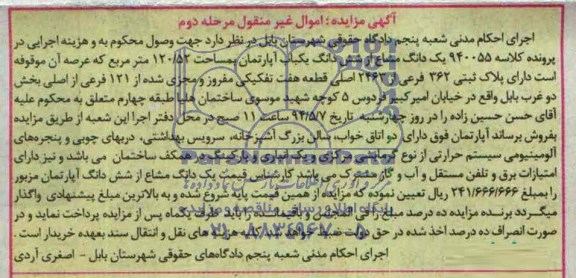 آگهی مزایده: اموال غیر منقول مرحله دوم
اجرای احکام مدنی شعبه پنجم دادگاه حقوقی شهرستان بابل در نظر دارد جهت وصول محکوم به و هزینه اجرایی در
پرونده کلاسه ۹۴۰۰۵۵ یک دانگ مشاع از شش دانگ یکباب آپارتمان بمساحت ۱۲۰/۵۲ متر مربع که عرصه آن موقوفه
است دارای پلاک ثبتی ۳۶۲ فرعی از ۲۴۶۳ اصلی قطعه هفت تفکیکی مفروز و مجزی شده از ۱۲۱ فرعی از اصلی بخش
دو غرب بابل واقع در خیابان امیرکبیر فردوس ۵ کوچه شهید موسوی ساختمان هلیا طبقه چهارم متعلق به محکوم علیه
آقای حسن حسین زاده را در روز چهارشنبه تاریخ ۹۴/۵/۷ ساعت ۱۱ صبح در محل دفتر اجرا این شعبه از طریق مزایده
بفروش برساند آپارتمان فوق دارای دو اتاق خواب، سالن بزرگ آشپزخانه، سرویس بهداشتی، دربهای چوبی و پنجره‌های
آلومینیومی سیستم حرارتی از نوع گرمایشی مرکزی و یک انباری و پارکینگ در همکف ساختمان می باشد و نیز دارای
امتیازات برق و تلفن مستقل و آب و گاز مشترک می باشد کارشناس قیمت یک دانگ مشاع از شش دانگ آپارتمان مزبور
را بمبلغ ۲۴۱/۶۶۶/۶۶۶ ریال تعیین نموده که مزایده از همین قیمت پایه شروع شده و به بالاترین مبلغ پیشنهادی واگذار
میگردد برنده مزایده ده درصد مبلغ را فی المجلس و باقیمانده را باید ظرف یکماه پس از مزایده پرداخت نماید و در
صورت انصراف ده درصد اخذ شده در حق دولت ضبط خواهد شد کلیه هزینه های نقل و انتقال سند بعهده خریدار است.
اجرای احکام مدنی شعبه پنجم دادگاههای حقوقی شهرستان بابل - اصغری آردی
۰۲۱-۸۸۳۴۹۶۷۰-۵